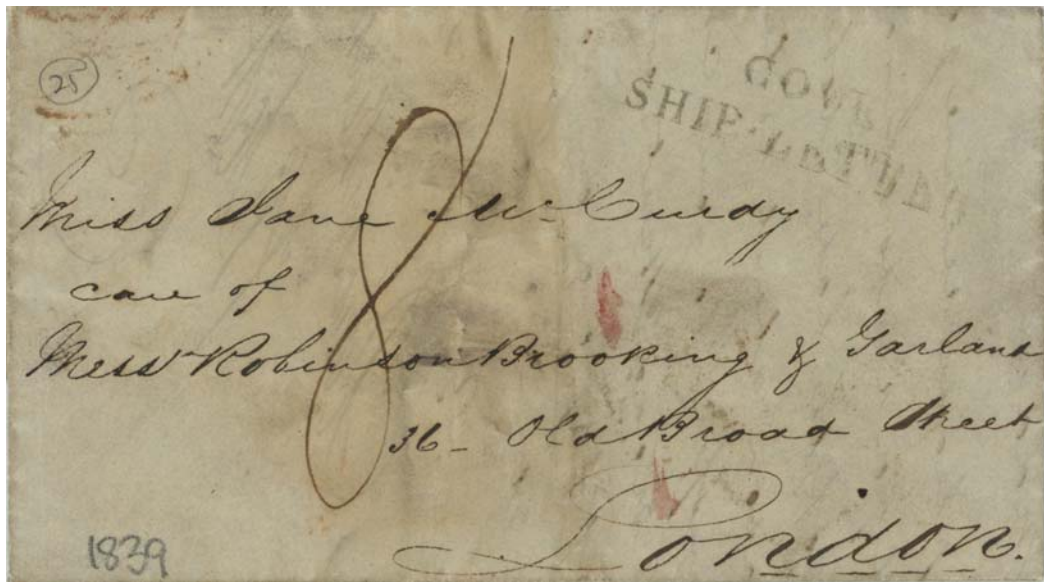 25
GOVER
SHIP-LETTER
8
Miss Jane McCurdy
care of
Messrs Robinson Brooking & Garland
36 - Old Broad Street
London.
1839